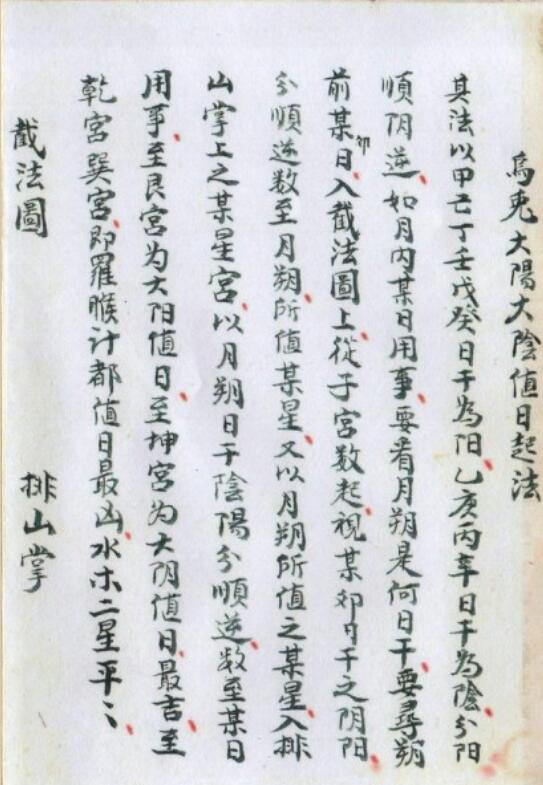 烏兎大陽大陰值日起法
其法以甲己丁壬戊癸日干為阳乙庚丙辛日干為陰分阳
順阴逆如月内某日用事要看月朔是何日干要尋朔
前某卯日入截法圖上從子宮数起視某卯日干之阴阳
分順逆数至月朔所值某星又以月朔所值之某星入排
山掌上之某星宮以月朔日干陰陽分順逆数至某日
用事至艮宮为大阳值日至坤宮为大阴值日最吉至
乾宮巽宮即羅睺计都值日最凶水木二星平〻
截法圖
排山掌